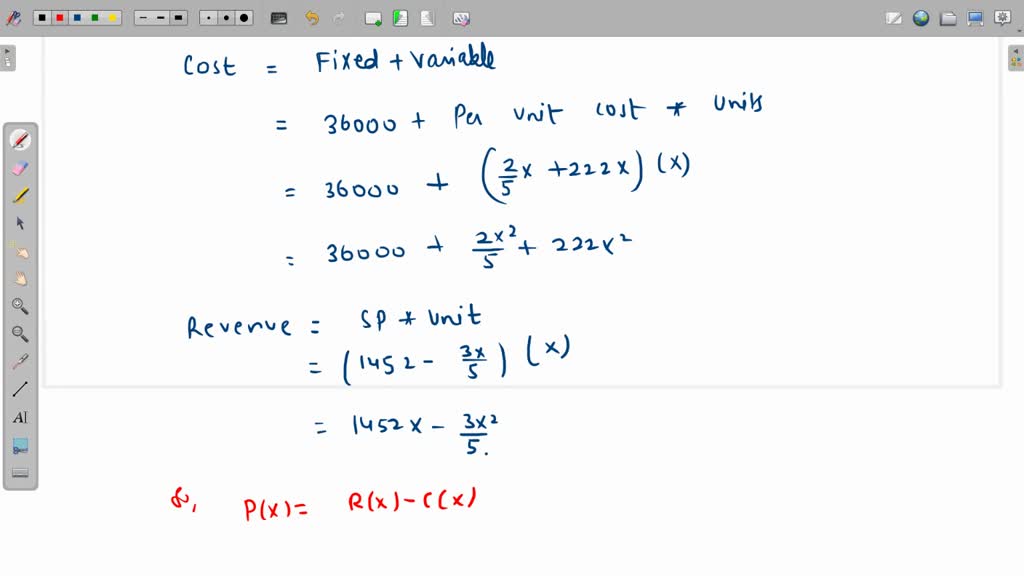 Cost = Fixed + Variable
= 36000 + Per unit cost * units
= 36000 + (2/5 x + 222x) (x)
= 36000 + 2x²/5 + 222x²
Revenue = SP * Unit
= (1452 - 3x/5) (x)
= 1452x - 3x²/5.
P(x) = R(x) - C(x)